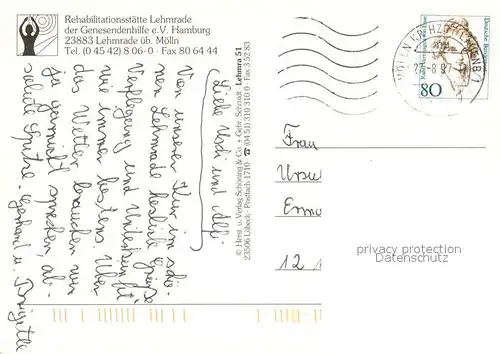 Rehabilitationsstätte Lehmrade
der Genesendenhilfe e.V. Hamburg
23883 Lehmrade üb. Mölln
Tel. (0 45 42) 8 06-0 · Fax 80 64 44
Liebe Uschi und Alf.
Von unserer Kur im schö-
nen Lehmrade herzliche Grüße
Verpflegung und Unterkunft
wie immer bestens. Über
das Wetter brauchen wir
ja garnicht sprechen, ab-
solute Spitze. Gerhard u. Brigitte
© Herst. u. Verlag Schöning & Co. + Gebr. Schmidt · Lehmra 51
23506 Lübeck · Postfach 1710 ☎ (04 51) 310 310-0 · Fax 3 52 83
Deutsche Bundespost
80
Frau
12 1
privacy protection
Datenschutz